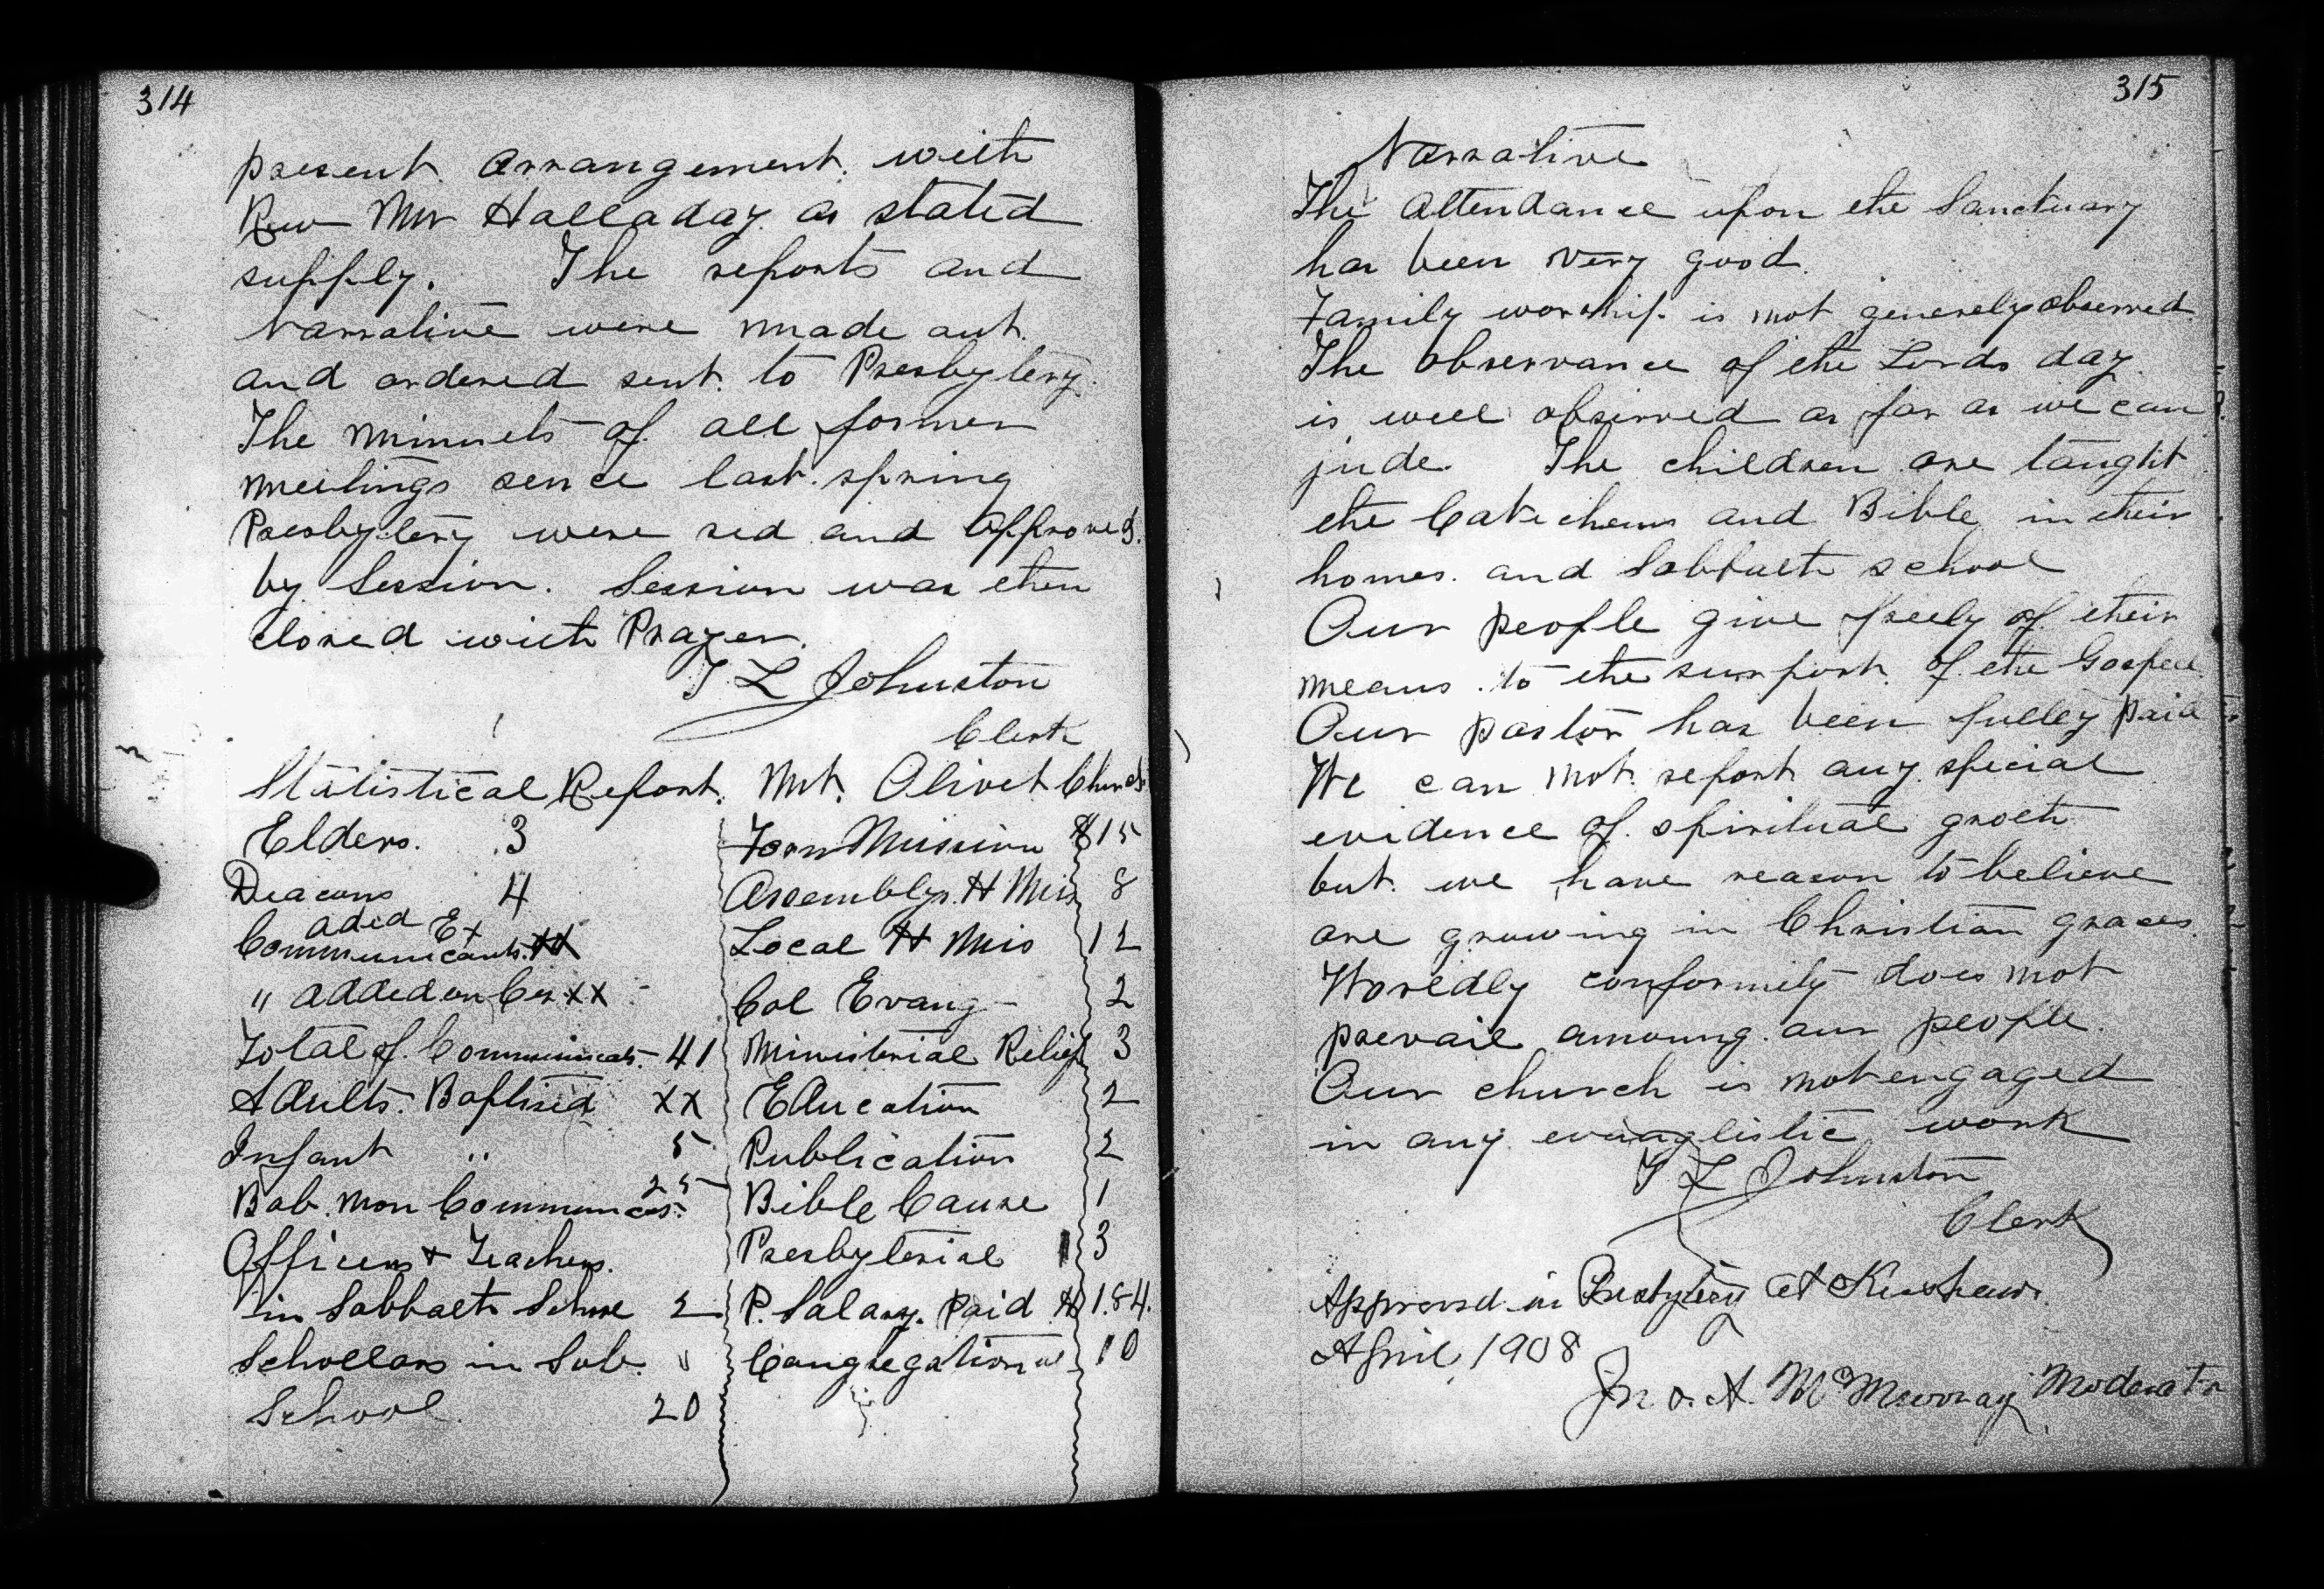 314
present arrangement with
Rev Mr Halladay as stated
supply. The reports and
Narrative were made out
and ordered sent to Presbytery.
The minuets of all former
meetings sence last spring
Presbytery were red and approved
by Session. Session was then
closed with Prayer.
T L Johnston
Clerk
Statistical Report. Mt. Olivet Church
Elders. 3
Deacons 4
aded Ex
Communicants. XX
" added on Cer XX
Total of Communicats - 41
Adults Baptised XX
Infant " 5
Bab. Non Communcas. 25
Officers & Teachers.
in Sabbaeth Schoe 2
Schoelars in Sab.
School 20
Forn Mission $15
Assemblys H Mis 8
Local H Mis 12
Col Evang - 2
Ministerial Relief 3
Education 2
Publication 2
Bible Cause 1
Presbyterial 3
P. Salary. Paid $ 1.84.
Congregational 10
315
Narrative
The attendance upon the Sanctuary
has been very good.
Family worship is not generely observed
The observance of the Lords day
is well observed as far as we can
jude. The children are taught
the Catechems and Bible in their
homes and Sabbaeth school
Our people give freely of their
means to the surport of the Gospel
Our pastor has been fulley paid
We can not report any special
evidence of spiritual groeth
but we have reason to believe
are growing in Christian graces.
Woreldly conformity does not
prevail amoung our people.
Our church is not engaged
in any evanglistic work
T L Johnston
Clerk
Approved in Presbytery at Kershaw.
April, 1908
Jno. A. McMurray Moderator